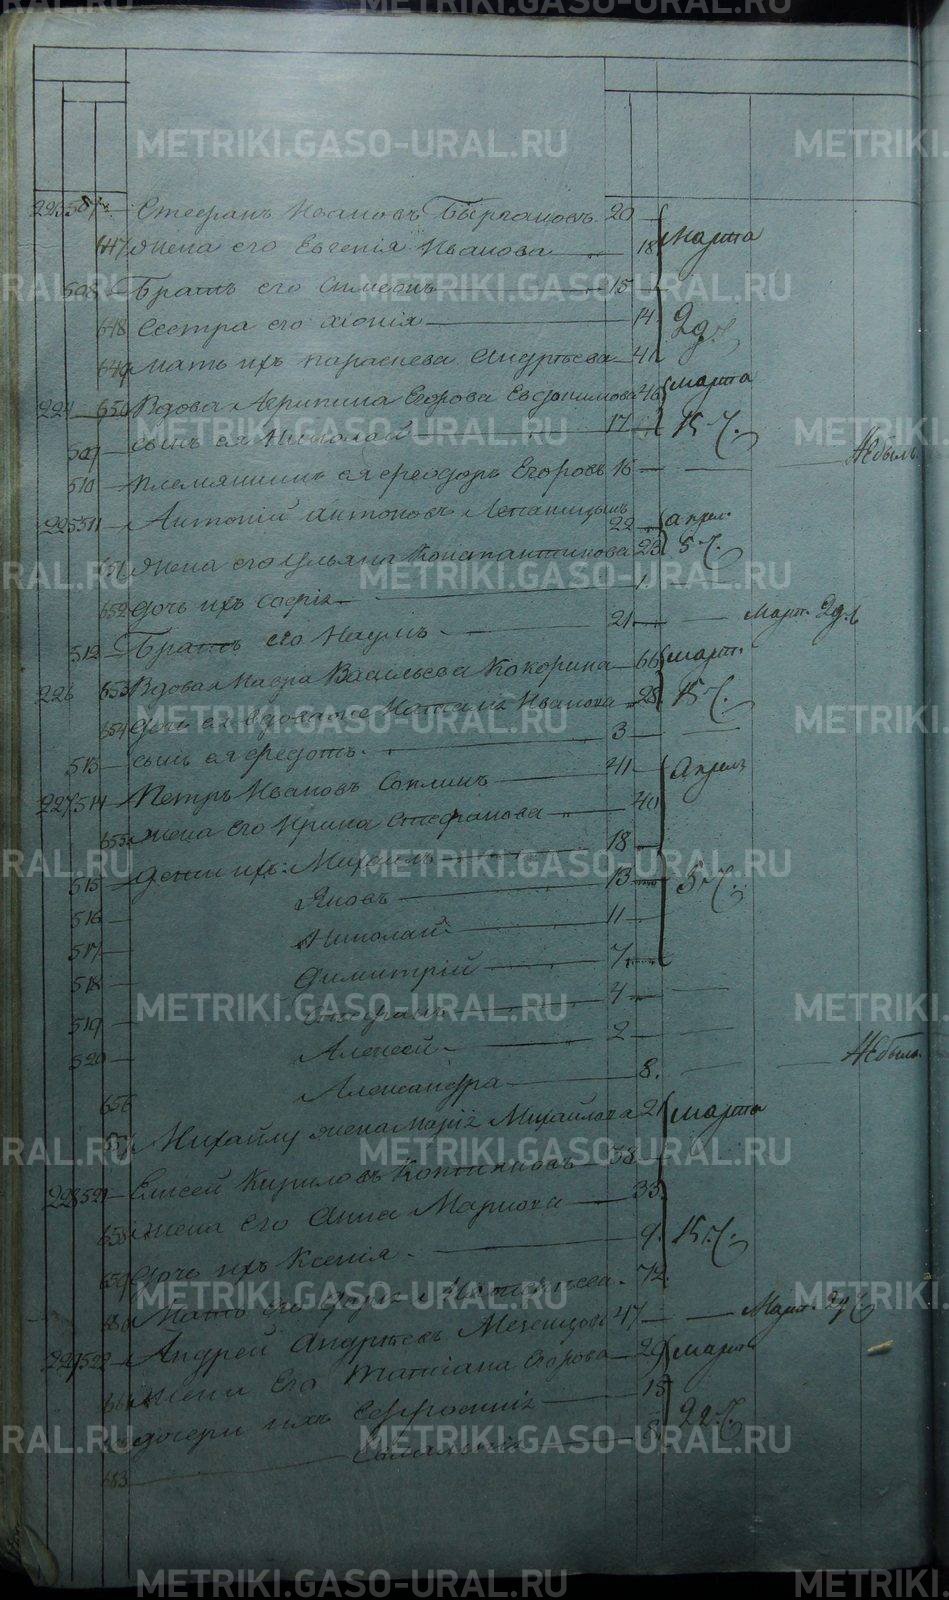 223 507 Стефанъ Ивановъ 20
647 жена его Евгенія Иванова 18 марта
508 Братъ его Симеонъ 15
648 Сестра его Хіонія 14 2 д.
649 мать ихъ Параскева Андреева 41
224 650 Вдова Агрипина Егорова Евдокимова 46 марта
509 сынъ ея Николай 17 15 ч.
510 племянникъ ея Феодоръ Егоровъ 16 Не былъ
225 511 Антоній Антоновъ 22 апрел.
651 жена его Ульяна Константинова 23 5 ч.
652 дочь ихъ Софія 1
512 Братъ его Наумъ 21 Март. 2 д.
226 653 Вдова Мавра Васильева Кокорина 66 март.
654 дочь ея вдова же Наталья Иванова 28 15 ч.
513 сынъ ея Федотъ 3
227 514 Петръ Ивановъ 41 Апреля
655 жена его Ирина Стефанова 40
515 дети ихъ: Михаилъ 18
516 Яковъ 13 5 ч.
517 Николай 11
518 Димитрій 7
519 Стефанъ 4
520 Алексей 2
656 Александра 8 Не былъ
657 Михаилу жена Марія Михайлова 21 марта
228 521 Елисей Кириловъ 38
658 жена его Анна Маркова 33
659 Дочь ихъ Ксенія 9 15 ч.
660 Мать его Дарья 72
229 522 Андрей Андреевъ 47 Март. 2 д.
661 жена его Татіана Егорова 29 март
дочери ихъ Евфросинія 15
663 8 22 ч.
METRIKI.GASO-URAL.RU